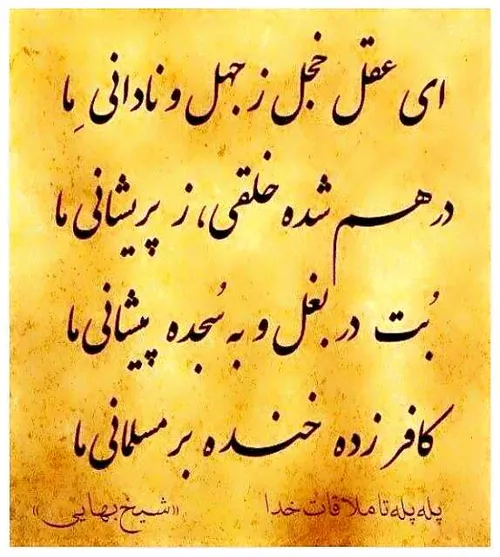 ای عقل خجل ز جهل و نادانی ِما
درهم شده خلقی، ز پریشانی ما
بُت در بغل و به سُجده پیشانی ما
کافر زده خنده بر مسلمانی ما
پله پله تا ملاقات خدا «شیخ بهایی»